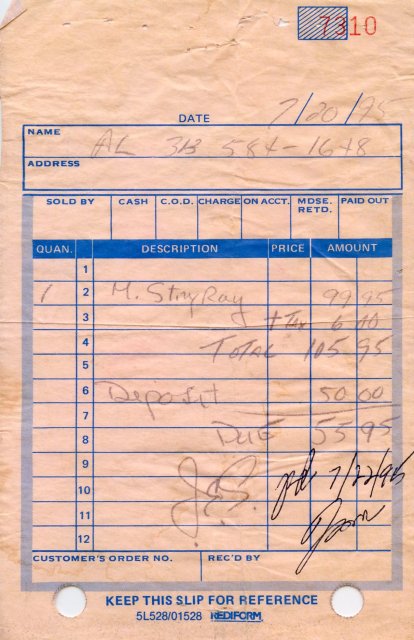 7310
DATE 7/20/95
NAME AL 313 584-1648
ADDRESS
SOLD BY CASH C.O.D. CHARGE ON ACCT. MDSE. RETD. PAID OUT
QUAN. DESCRIPTION PRICE AMOUNT
1
2 1 M. StingRay 99 95
3 + Tax 6 00
4 TOTAL 105 95
5
6 Deposit 50 00
7
8 DUE 55 95
9
10 J.E.S. pd 7/22/95
11
12
CUSTOMER'S ORDER NO. REC'D BY
KEEP THIS SLIP FOR REFERENCE
5L528/01528 REDIFORM